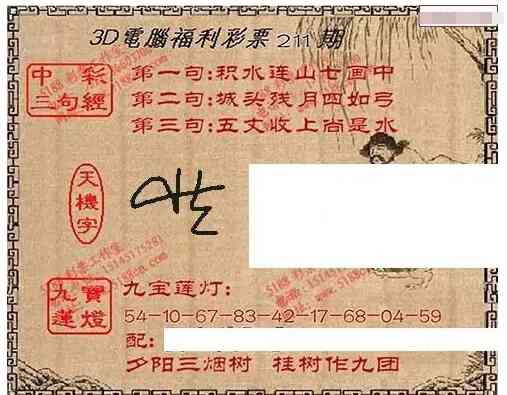 3D電腦福利彩票211期
中彩
三句經
第一句:积水连山七画中
第二句:城头残月四如弓
第三句:五丈收上尚是水
天機字
九寶
蓮燈
九宝莲灯:
54-10-67-83-42-17-68-04-59
配:
夕阳三烟树 桂树作九团